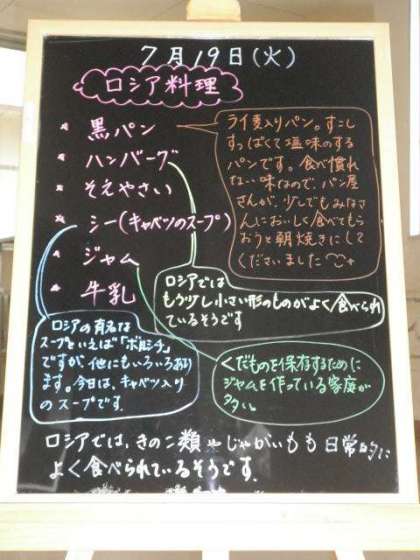 7月19日(火)
ロシア料理
* 黒パン
* ハンバーグ
* そえやさい
* シー(キャベツのスープ)
* ジャム
* 牛乳
ライ麦入りパン。すこし
すっぱくて塩味のする
パンです。食べ慣れ
ない味なので、パン屋
さんが、少しでもみなさ
んにおいしく食べてもら
おうと朝焼きにして
くださいました
ロシアでは
もう少し小さい形のものがよく食べられ
ているそうです
ロシアの有名な
スープといえば「ボルシチ」
ですが、他にもいろいろあり
ます。今日は、キャベツ入り
のスープです。
くだものを保存するために
ジャムを作っている家庭が
多い。
ロシアでは、きのこ類やじゃがいもも日常的に
よく食べられているそうです。